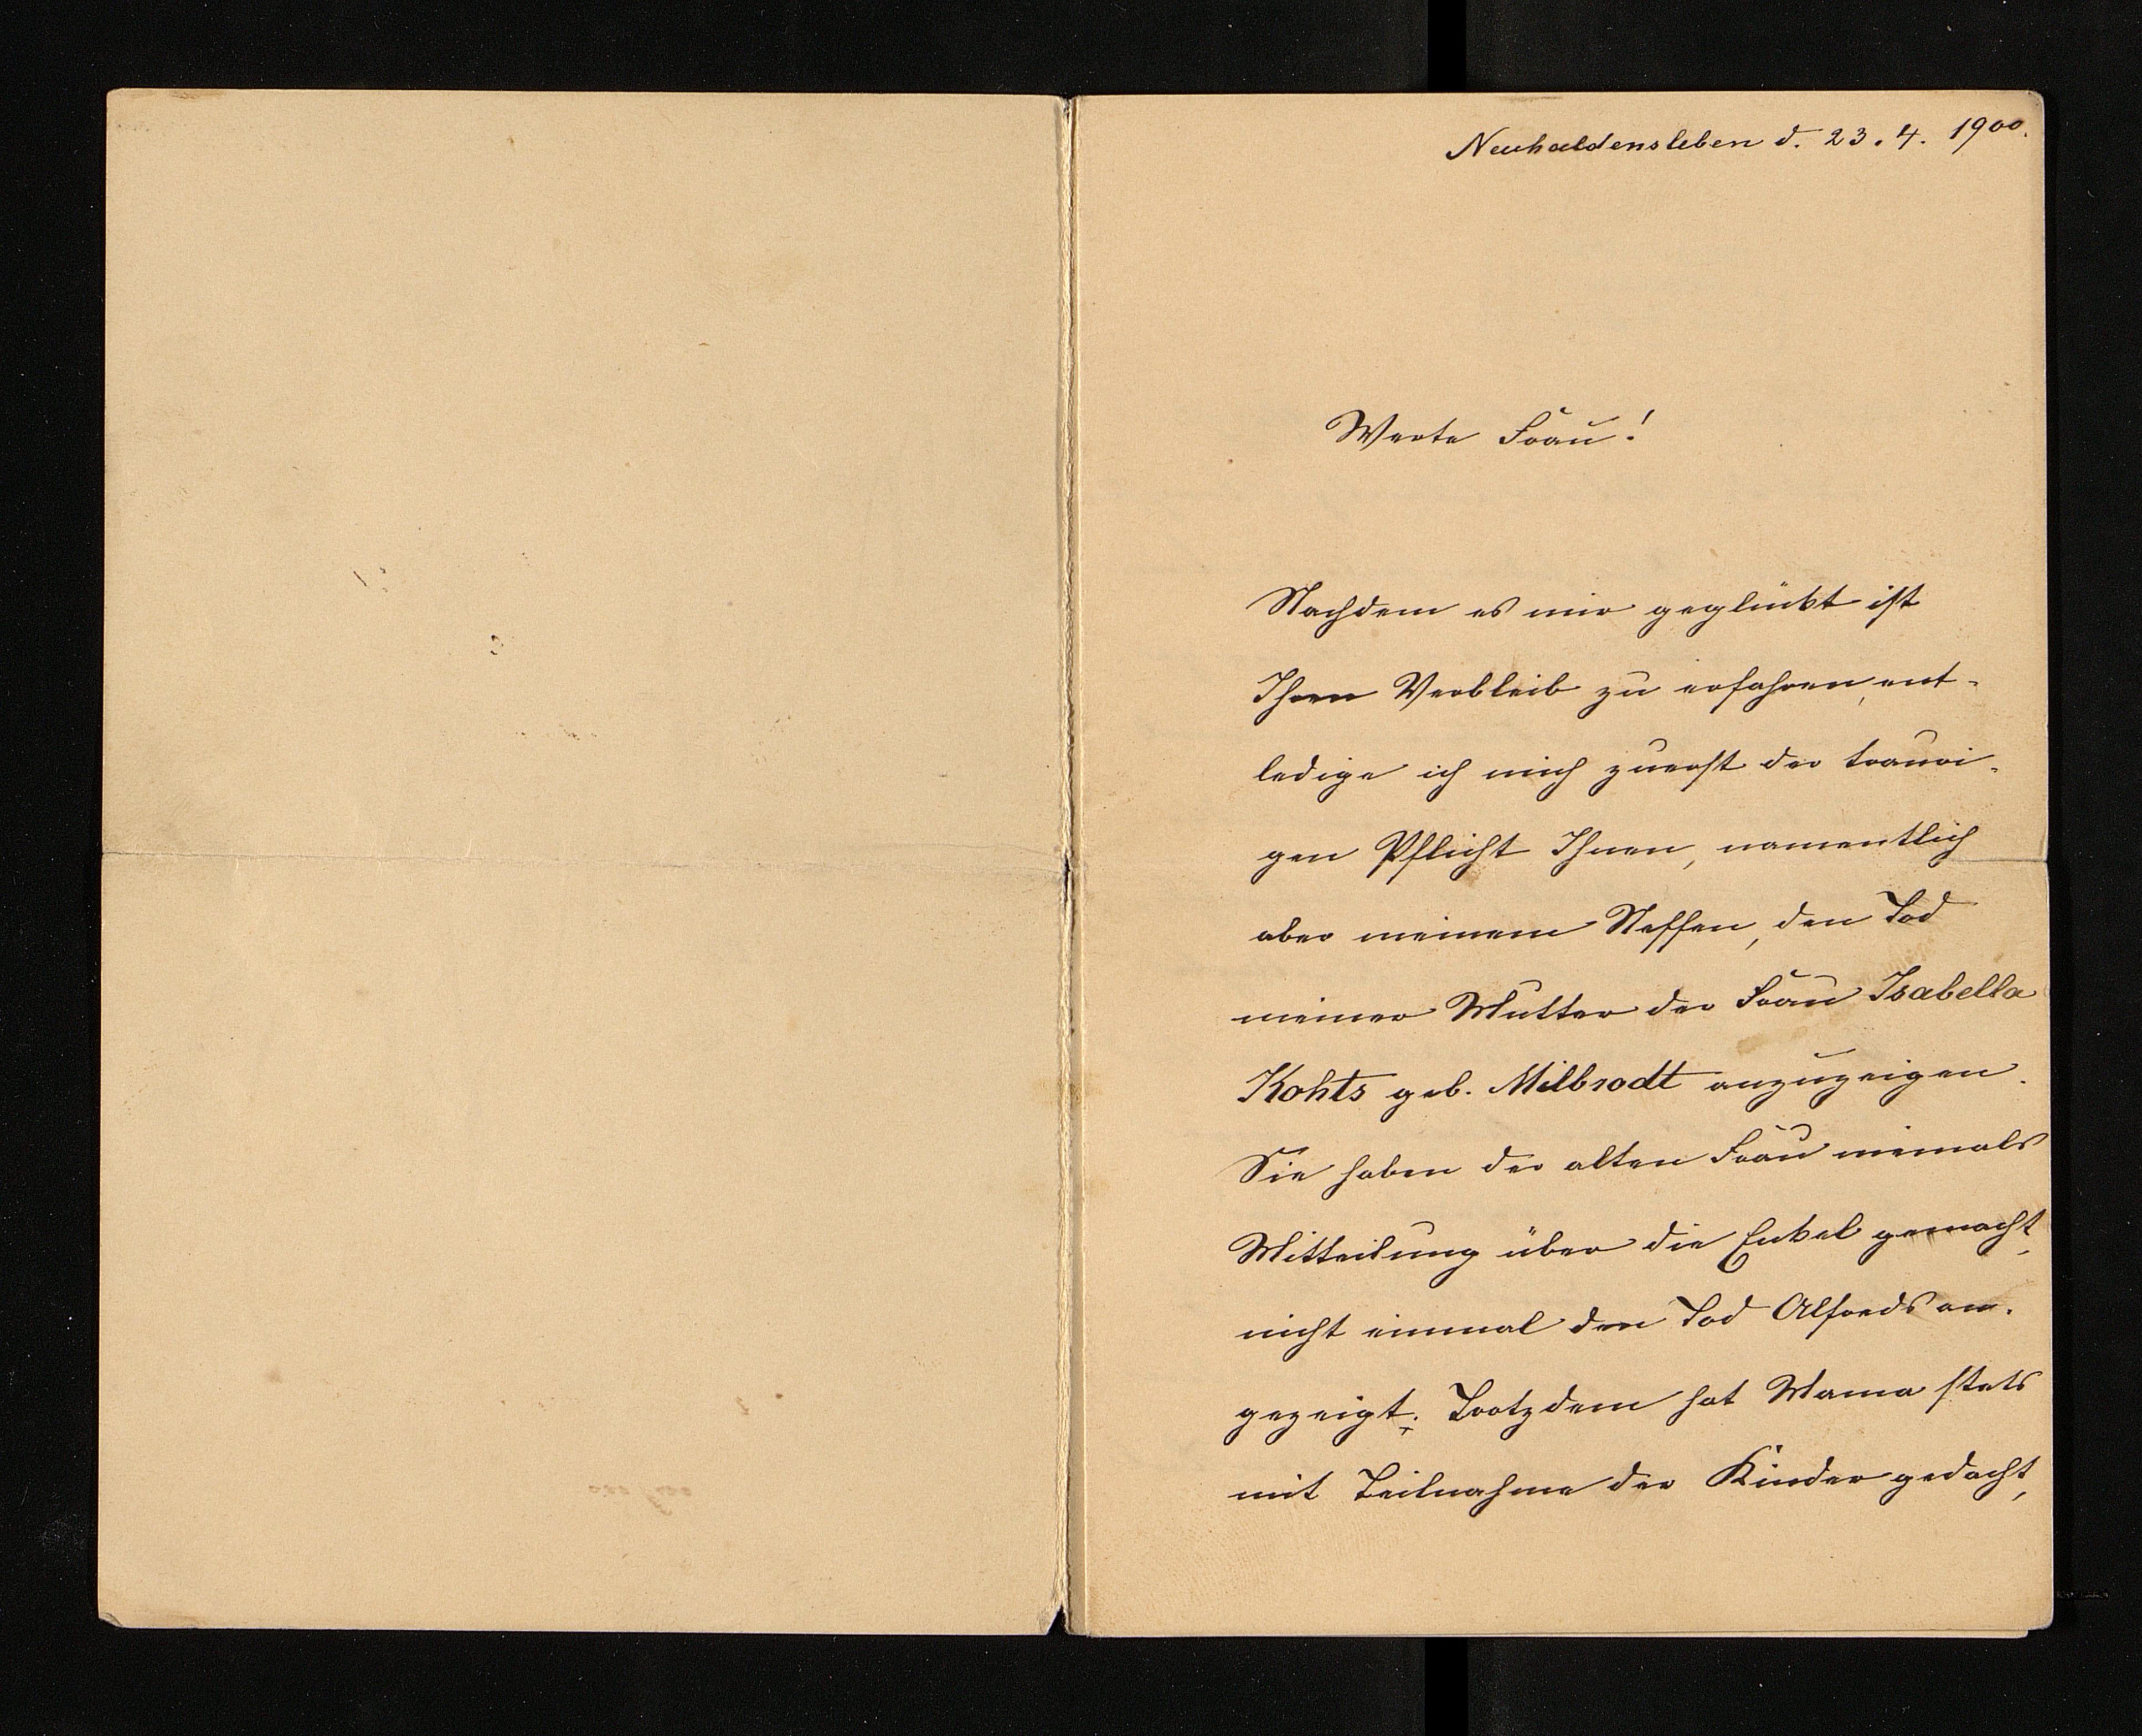 Neuhaldensleben d. 23.4.1900.
Werte Frau!
Nachdem es mir geglückt ist
Ihren Verbleib zu erfahren, ent-
ledige ich mich zuerst der trauri-
gen Pflicht Ihnen, namentlich
aber meinem Neffen, den Tod
meiner Mutter der Frau Isabella
Kohts geb. Milbrodt anzuzeigen.
Sie haben der alten Frau niemals
Mitteilung über die Enkel gemacht,
nicht einmal den Tod Alfreds an-
gezeigt. Trotzdem hat Mama stets
mit Teilnahme der Kinder gedacht,